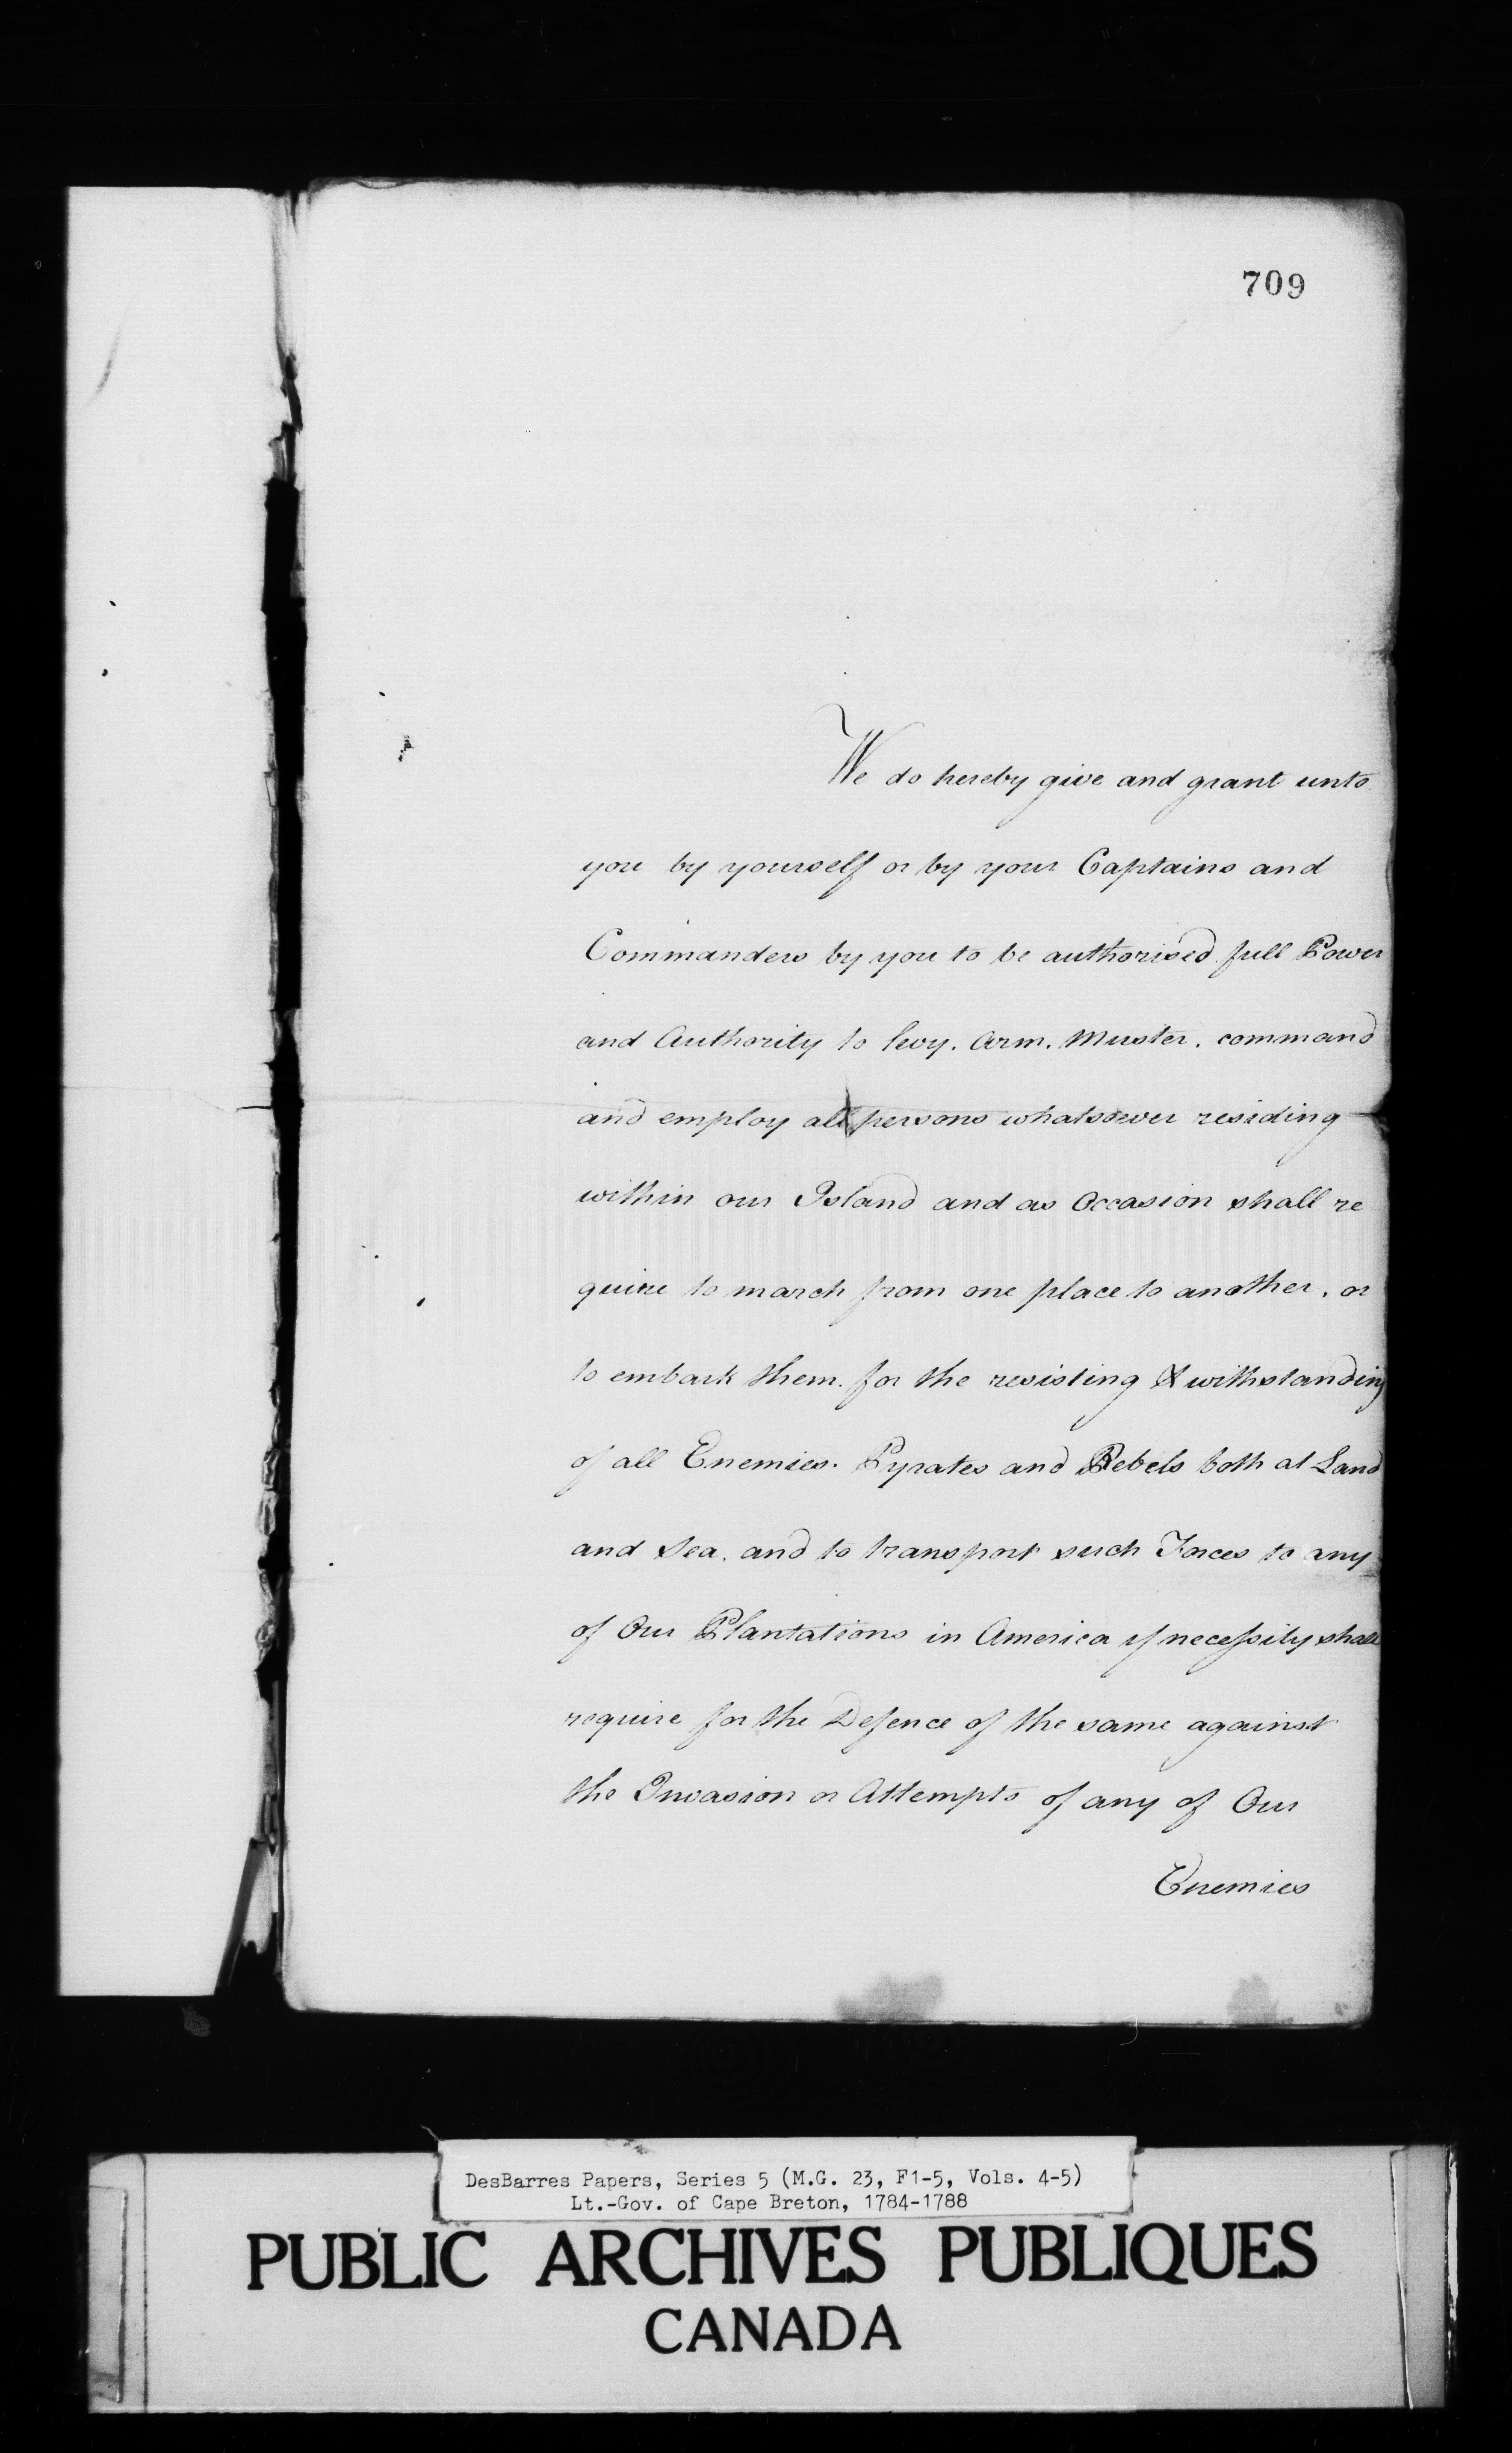 709
We do hereby give and grant unto
you by yourself or by your Captains and
Commanders by you to be authorised full Power
and Authority to levy. Arm. Muster. command
and employ all persons whatsoever residing
within our Island and as Occasion shall re
quire to march from one place to another, or
to embark them. for the resisting & withstanding
of all Enemies. Pyrates and Rebels both at Land
and Sea. and to transport such Forces to any
of Our Plantations in America if necessity shall
require for the Defence of the same against
the Invasion or Attempts of any of Our
Enemies
DesBarres Papers, Series 5 (M.G. 23, F1-5, Vols. 4-5)
Lt.-Gov. of Cape Breton, 1784-1788
PUBLIC ARCHIVES PUBLIQUES
CANADA